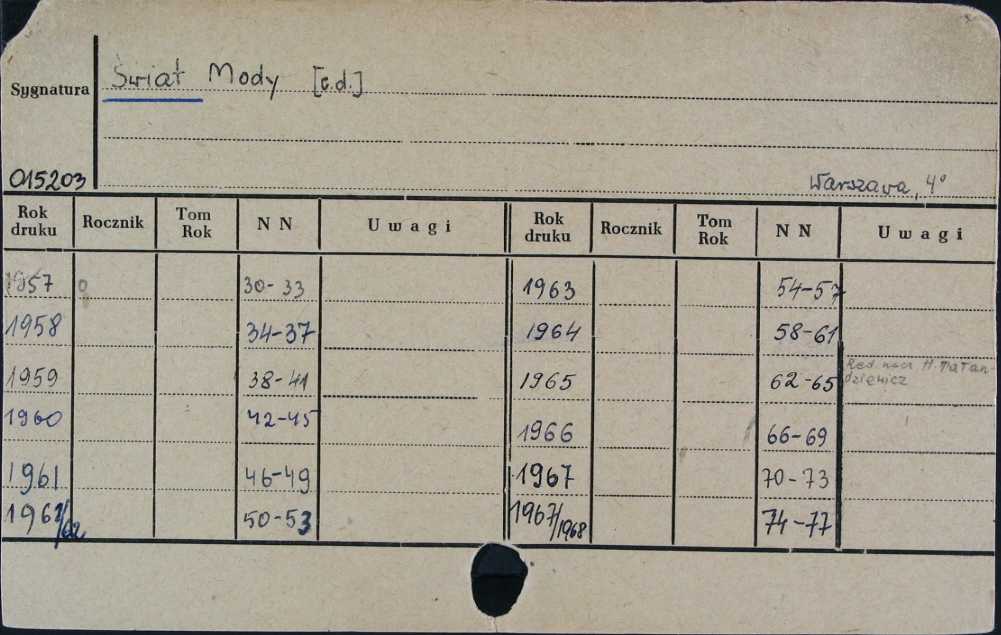 Świat Mody [c.d.]
Sygnatura
015203
Warszawa, 4°
Rok druku Rocznik Tom Rok N N Uwagi Rok druku Rocznik Tom Rok N N Uwagi
1957 30-33 1963 54-57
1958 34-37 1964 58-61
1959 38-41 1965 62-65 Red. nacz. H. Matan-
dziewicz
1960 42-45 1966 66-69
1961 46-49 1967 70-73
1961/62 50-53 1967/1968 74-77